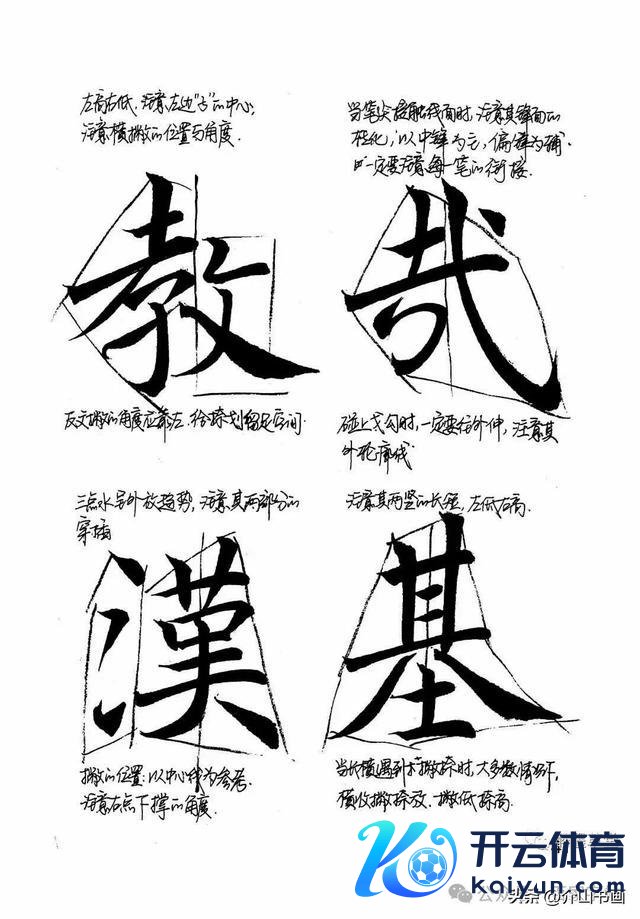 左高右低，注意左边"子"的中心，
注意横撇的位置与角度.
教
反文撇的角度应靠左，给捺划留足空间.
当笔尖接触纸面时，注意其锋面的
变化，以中锋为主，偏锋为辅.
一定要注意每一笔的衔接.
哉
碰上戈勾时，一定要往外伸，注意其
外轮廓线
三点水呈外放趋势，注意其两部分的
穿插
漢
撇的位置：以中心线为参考.
注意右点下撑的角度.
注意其两竖的长短，左低右高.
基
当长横遇到撇捺时，大多数情况下，
横收撇捺放，撇低捺高.
开云体育
kaiyun.com
头条 @介山书画